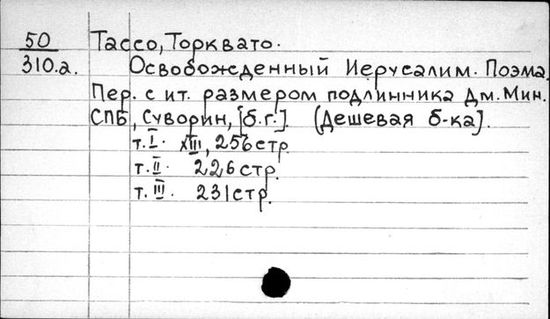 50 Тассо, Торквато.
310.а. Освобожденный Иерусалим. Поэма.
Пер. с ит. размером подлинника Дм. Мин.
СПБ, Суворин, [б.г.] (Дешевая б-ка].
т. I. XIII, 256 стр
т. II. 226 стр.
т. III. 231 стр.